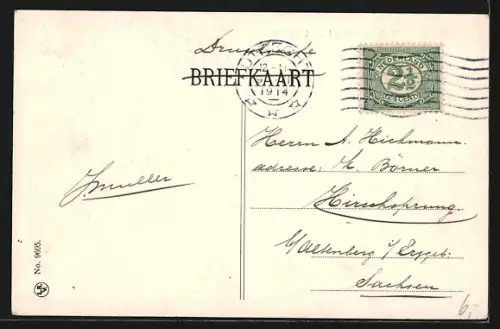 Drucksache
BRIEFKAART
1914
NEDERLAND
2½
CENT
Herrn A. Hickmann
adresse: H. Börner
Hirschsprung
b/Altenberg i/Erzgeb.
Sachsen
JMuller
No. 9695.
6,-